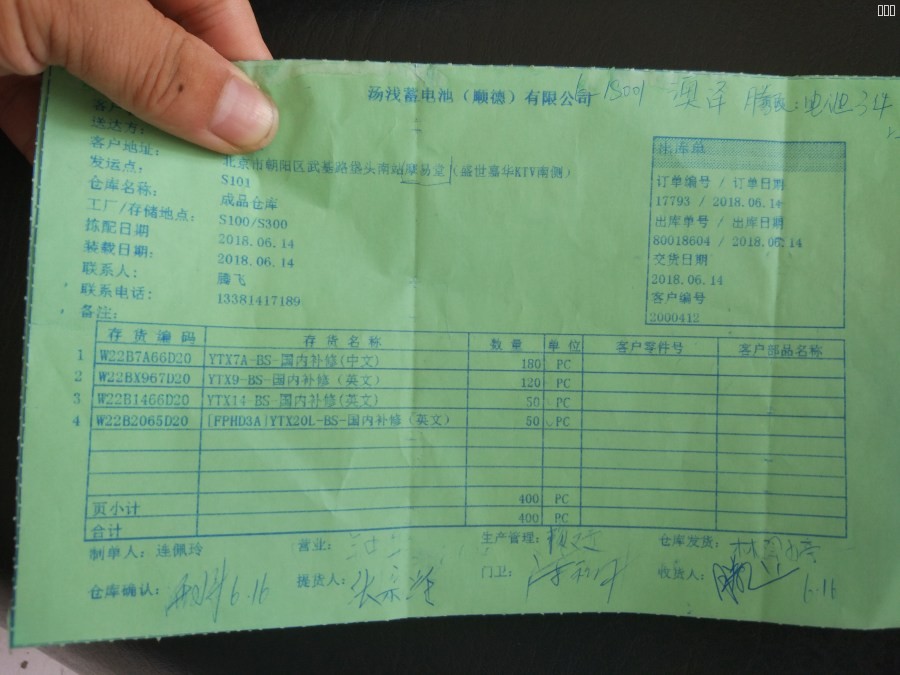 汤浅蓄电池（顺德）有限公司
澳泽
送达方：
客户地址：
北京市朝阳区武基路垡头南站周易堂（盛世嘉华KTV南侧）
发运点：
S101
仓库名称：
成品仓库
工厂/存储地点：
S100/S300
拣配日期
2018.06.14
装载日期：
2018.06.14
联系人：
腾飞
联系电话：
13381417189
备注：
出库单
订单编号 / 订单日期
17793 / 2018.06.14
出库单号 / 出库日期
80018604 / 2018.06.14
交货日期
2018.06.14
客户编号
2000412
存货编码 存货名称 数量 单位 客户零件号 客户部品名称
1 W22B7A66D20 YTX7A-BS-国内补修(中文) 180 PC
2 W22BX967D20 YTX9-BS-国内补修(英文) 120 PC
3 W22B1466D20 YTX14-BS-国内补修(英文) 50 PC
4 W22B2065D20 [FPHD3A]YTX20L-BS-国内补修(英文) 50 PC
页小计 400 PC
合计 400 PC
制单人：连佩玲 营业： 生产管理： 仓库发货：
仓库确认： 6.16 提货人： 门卫： 收货人： 6.16